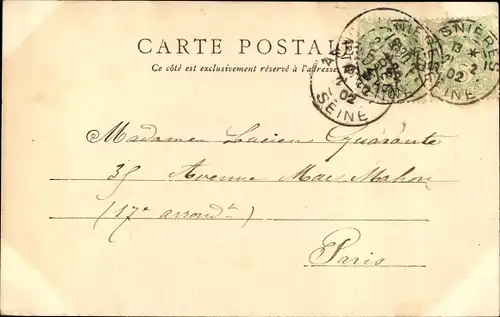 CARTE POSTALE
Ce côté est exclusivement réservé à l'adresse
SEINE
02
SNIÈRE
13
2
02
SEINE
Madame Lucien Quarante
35 Avenue Mac Mahon
(17e arrondt)
Paris